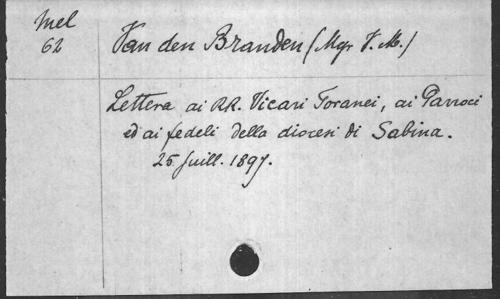 Mel
62
Van den Branden (Mgr V. M.)
Lettera ai RR. Vicari Foranei, ai Parroci
ed ai fedeli della diocesi di Sabina.
25 Juill. 1897.